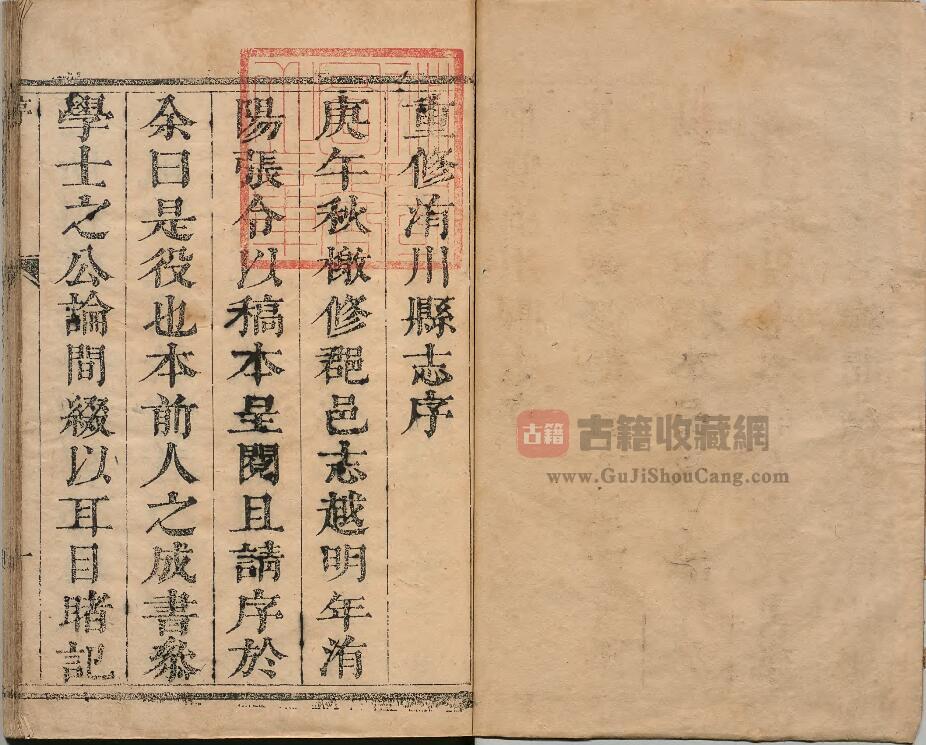 重修洧川縣志序
庚午秋檄修郡邑志越明年洧
陽張令以稿本呈閱且請序於
余曰是役也本前人之成書叅
學士之公論間綴以耳目睹記
古籍 古籍收藏網
www.GuJiShouCang.com